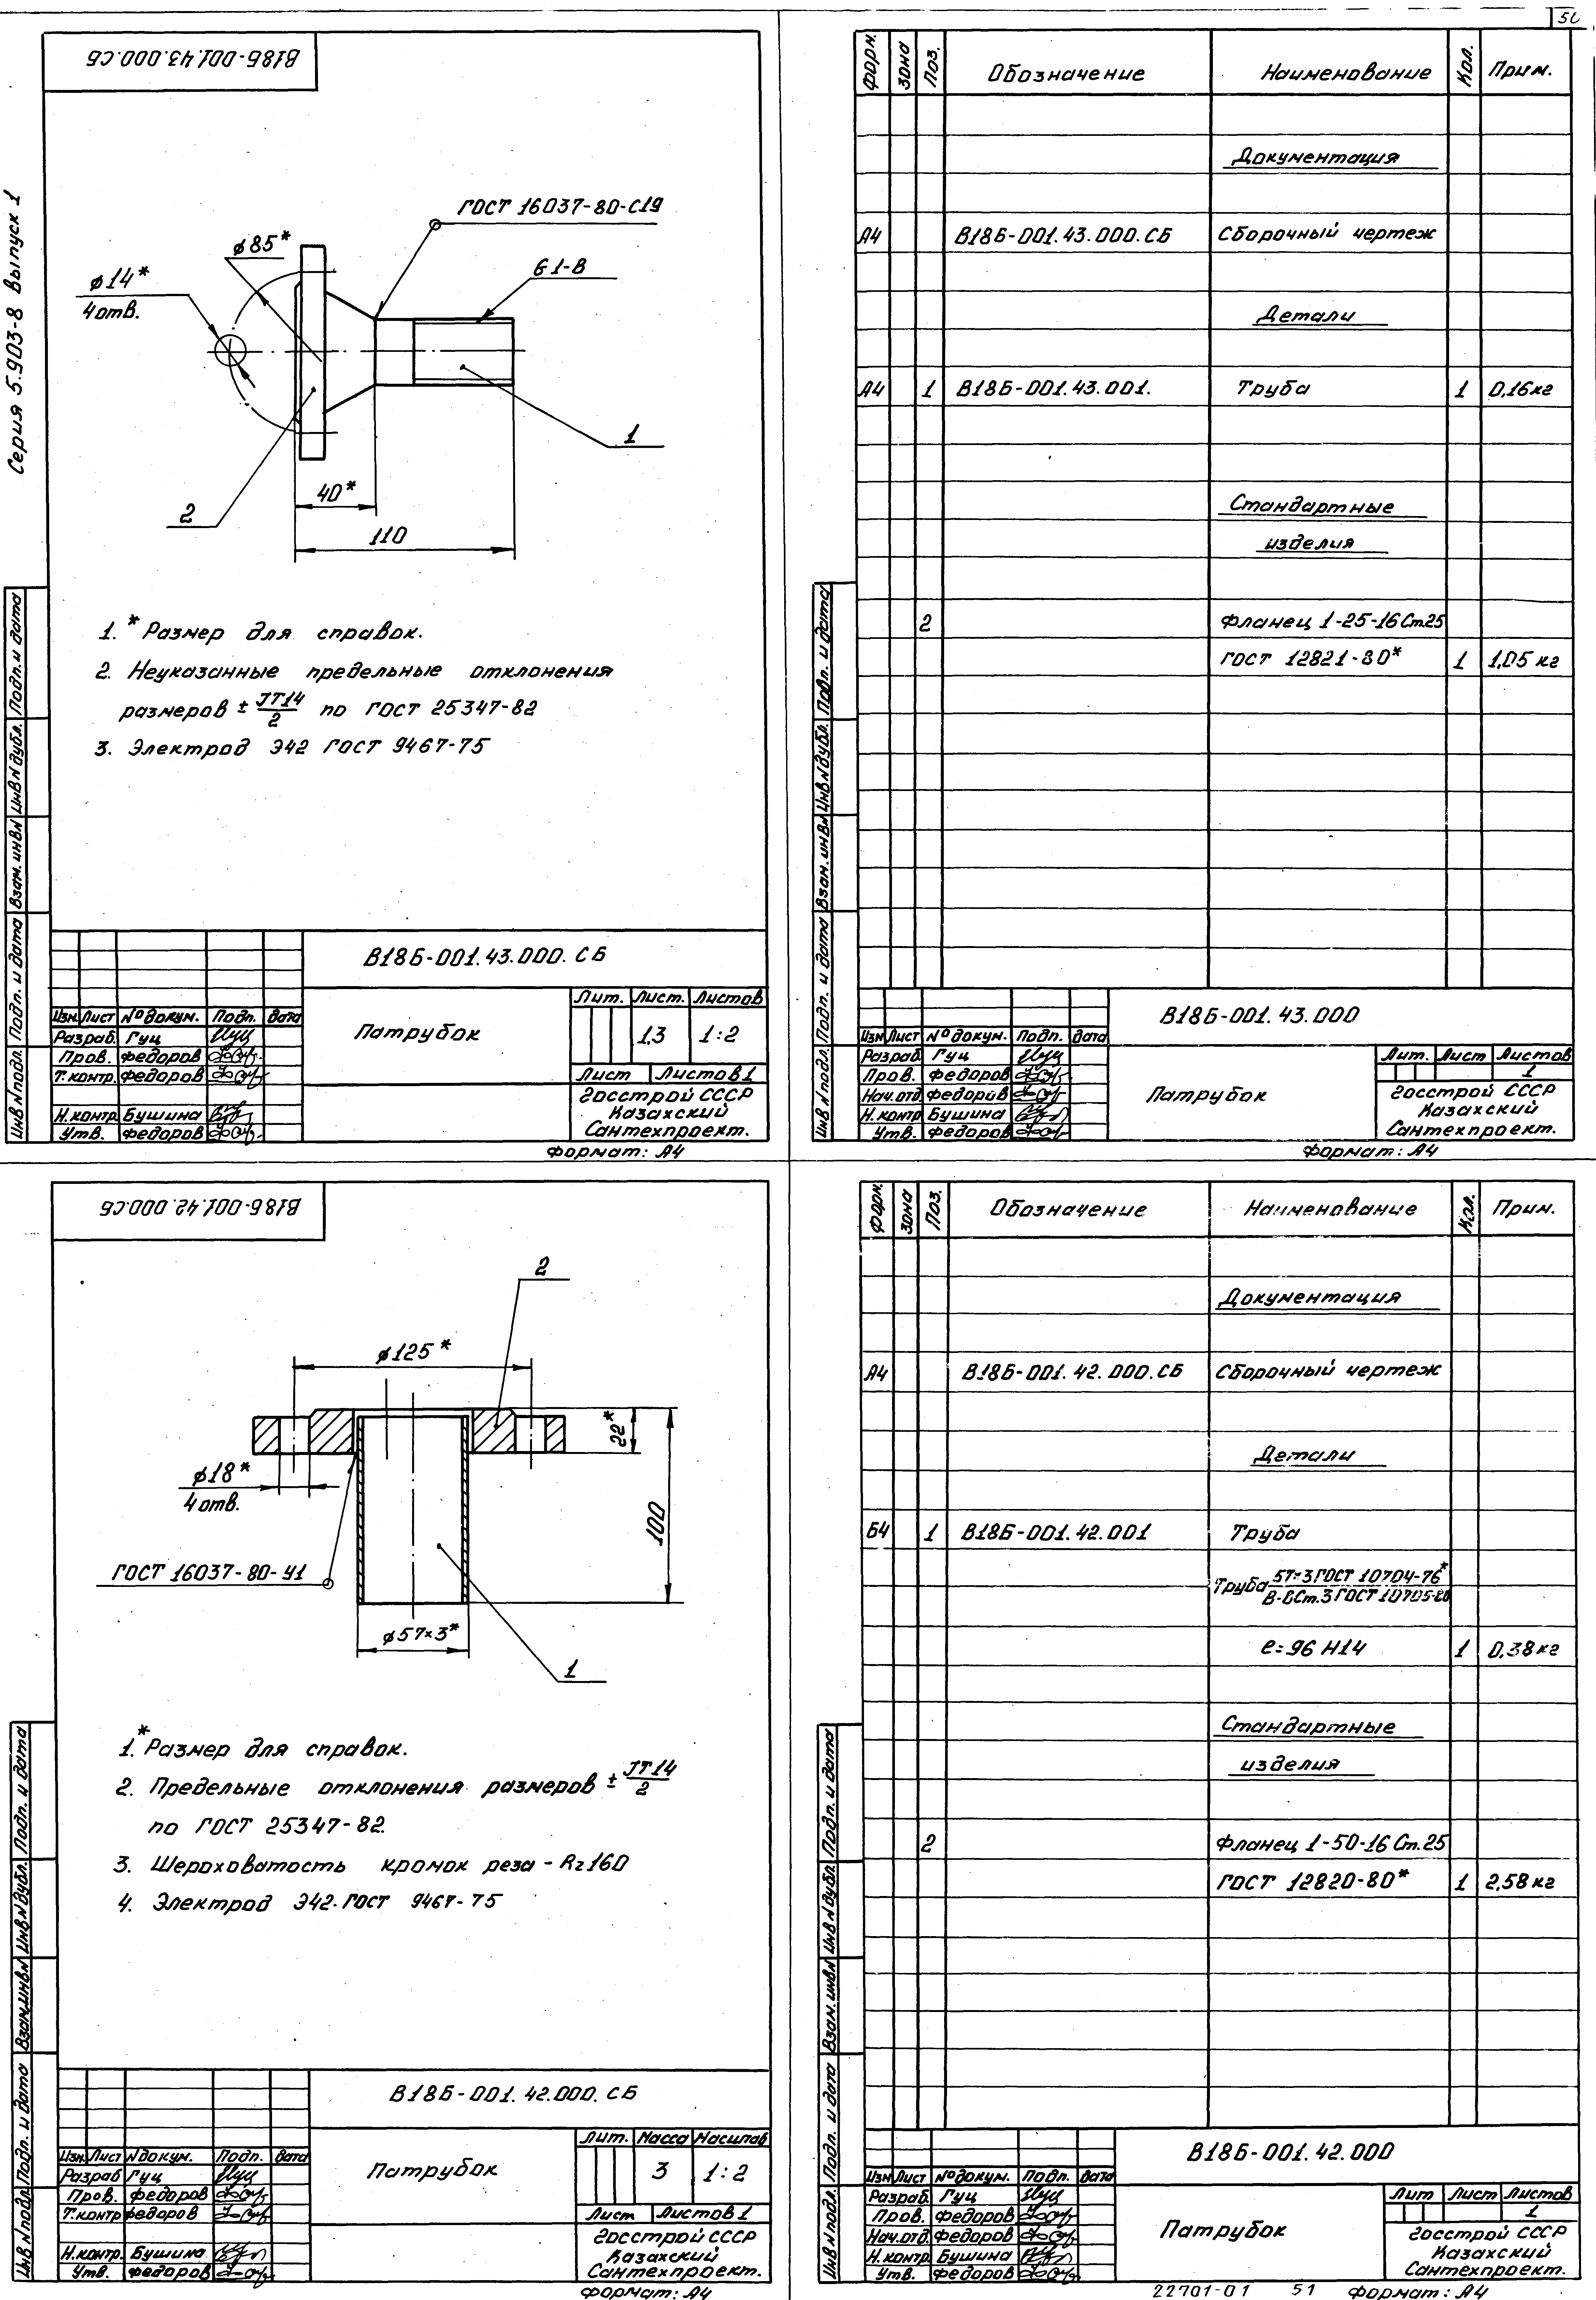 50
В18Б-001.43.000.СБ
Серия 5.903-8 Выпуск 1
ГОСТ 16037-80-С19
⌀85*
G1-В
⌀14*
4 отв.
1
2
40*
110
1. * Размер для справок.
2. Неуказанные предельные отклонения
размеров ± JT14/2 по ГОСТ 25347-82
3. Электрод Э42 ГОСТ 9467-75
Инв.N подл. Подп. и дата Взам. инв.N Инв.N дубл. Подп. и дата
В18Б-001.43.000.СБ
Лит. Лист. Листов
Изм. Лист N° докум. Подп. Дата
Разраб. Гуц
Патрубок
1,3 1:2
Пров. Федоров
Т.контр. Федоров
Лист Листов 1
Н.контр. Бушина
Утв. Федоров
Госстрой СССР
Казахский
Сантехпроект.
Формат: А4
Форм. Зона Поз. Обозначение Наименование Кол. Прим.
Документация
А4 В18Б-001.43.000.СБ Сборочный чертеж
Детали
А4 1 В18Б-001.43.001. Труба 1 0,16кг
Стандартные
изделия
2 Фланец 1-25-16 Ст.25
ГОСТ 12821-80* 1 1,05 кг
Инв.N подл. Подп. и дата Взам. инв.N Инв.N дубл. Подп. и дата
В18Б-001.43.000
Изм. Лист N° докум. Подп. Дата
Разраб. Гуц
Пров. Федоров
Нач.отд. Федоров
Н.контр. Бушина
Утв. Федоров
Патрубок
Лит. Лист Листов
1
Госстрой СССР
Казахский
Сантехпроект.
Формат: А4
В18Б-001.42.000.СБ
2
⌀125*
22*
⌀18*
4 отв.
100
ГОСТ 16037-80-У1
⌀57×3*
1
1. * Размер для справок.
2. Предельные отклонения размеров ± JT14/2
по ГОСТ 25347-82.
3. Шероховатость кромок реза - Rz160
4. Электрод Э42. ГОСТ 9467-75
Инв.N подл. Подп. и дата Взам.инв.N Инв.N дубл. Подп. и дата
В18Б-001.42.000.СБ
Лит. Масса Масштаб
Изм. Лист N докум. Подп. Дата
Разраб. Гуц
Патрубок
3 1:2
Пров. Федоров
Т.контр. Федоров
Лист Листов 1
Н.контр. Бушина
Утв. Федоров
Госстрой СССР
Казахский
Сантехпроект.
Формат: А4
Форм. Зона Поз. Обозначение Наименование Кол. Прим.
Документация
А4 В18Б-001.42.000.СБ Сборочный чертеж
Детали
Б4 1 В18Б-001.42.001 Труба
Труба 57×3 ГОСТ 10704-76*
В-ВСт.3 ГОСТ 10705-80
ℓ=96 Н14 1 0,38кг
Стандартные
изделия
2 Фланец 1-50-16 Ст.25
ГОСТ 12820-80* 1 2,58кг
Инв.N подл. Подп. и дата Взам. инв.N Инв.N дубл. Подп. и дата
В18Б-001.42.000
Изм. Лист N° докум. Подп. Дата
Разраб. Гуц
Пров. Федоров
Нач.отд. Федоров
Н.контр. Бушина
Утв. Федоров
Патрубок
Лит Лист Листов
1
Госстрой СССР
Казахский
Сантехпроект.
22701-01 51 Формат: А4